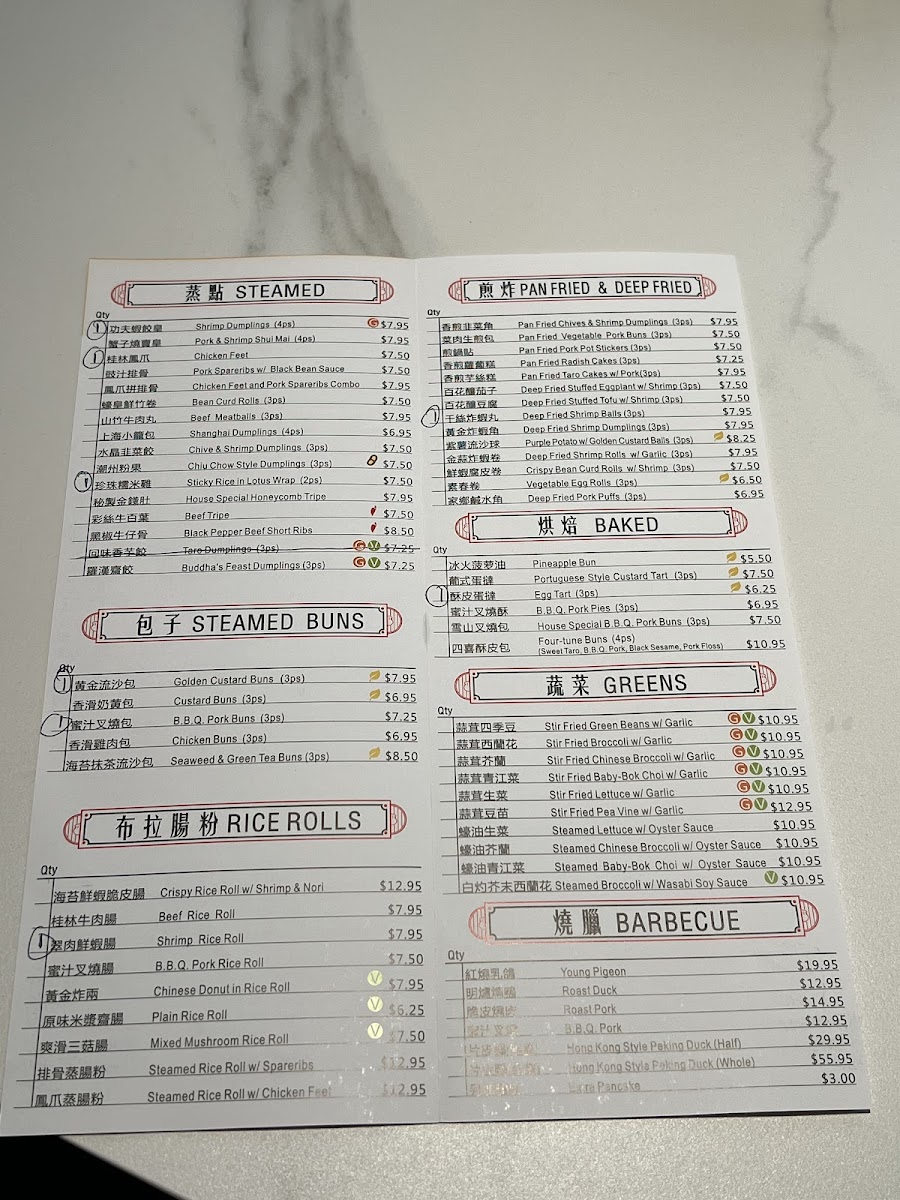 蒸點 STEAMED
Qty
1 功夫蝦餃皇 Shrimp Dumplings (4ps) G $7.95
蟹子燒賣皇 Pork & Shrimp Shui Mai (4ps) $7.95
1 桂林鳳爪 Chicken Feet $7.50
豉汁排骨 Pork Spareribs w/ Black Bean Sauce $7.50
鳳爪拼排骨 Chicken Feet and Pork Spareribs Combo $7.95
蠔皇鮮竹卷 Bean Curd Rolls (3ps) $7.50
山竹牛肉丸 Beef Meatballs (3ps) $7.95
上海小籠包 Shanghai Dumplings (4ps) $6.95
水晶韭菜餃 Chive & Shrimp Dumplings (3ps) $7.50
潮州粉果 Chiu Chow Style Dumplings (3ps) $7.50
1 珍珠糯米雞 Sticky Rice in Lotus Wrap (2ps) $7.50
秘製金錢肚 House Special Honeycomb Tripe $7.95
彩絲牛百葉 Beef Tripe $7.50
黑椒牛仔骨 Black Pepper Beef Short Ribs $8.50
回味香芋餃 Taro Dumplings (3ps) G V $7.25
羅漢齋餃 Buddha's Feast Dumplings (3ps) G V $7.25
包子 STEAMED BUNS
Qty
1 黃金流沙包 Golden Custard Buns (3ps) $7.95
香滑奶黃包 Custard Buns (3ps) $6.95
1 蜜汁叉燒包 B.B.Q. Pork Buns (3ps) $7.25
香滑雞肉包 Chicken Buns (3ps) $6.95
海苔抹茶流沙包 Seaweed & Green Tea Buns (3ps) $8.50
布拉腸粉 RICE ROLLS
Qty
海苔鮮蝦脆皮腸 Crispy Rice Roll w/ Shrimp & Nori $12.95
桂林牛肉腸 Beef Rice Roll $7.95
1 翠肉鮮蝦腸 Shrimp Rice Roll $7.95
蜜汁叉燒腸 B.B.Q. Pork Rice Roll $7.50
黃金炸兩 Chinese Donut in Rice Roll V $7.95
原味米漿齋腸 Plain Rice Roll V $6.25
爽滑三菇腸 Mixed Mushroom Rice Roll V $7.50
排骨蒸腸粉 Steamed Rice Roll w/ Spareribs $12.95
鳳爪蒸腸粉 Steamed Rice Roll w/ Chicken Feet $12.95
煎炸 PAN FRIED & DEEP FRIED
Qty
香煎韭菜角 Pan Fried Chives & Shrimp Dumplings (3ps) $7.95
菜肉生煎包 Pan Fried Vegetable Pork Buns (3ps) $7.50
煎鍋貼 Pan Fried Pork Pot Stickers (3ps) $7.50
香煎蘿蔔糕 Pan Fried Radish Cakes (3ps) $7.25
香煎芋絲糕 Pan Fried Taro Cakes w/ Pork (3ps) $7.95
百花釀茄子 Deep Fried Stuffed Eggplant w/ Shrimp (3ps) $7.50
百花釀豆腐 Deep Fried Stuffed Tofu w/ Shrimp (3ps) $7.50
1 干絲炸蝦丸 Deep Fried Shrimp Balls (3ps) $7.95
黃金炸蝦角 Deep Fried Shrimp Dumplings (3ps) $7.95
紫薯流沙球 Purple Potato w/ Golden Custard Balls (3ps) $8.25
金蒜炸蝦卷 Deep Fried Shrimp Rolls w/ Garlic (3ps) $7.95
鮮蝦腐皮卷 Crispy Bean Curd Rolls w/ Shrimp (3ps) $7.50
素春卷 Vegetable Egg Rolls (3ps) $6.50
家鄉鹹水角 Deep Fried Pork Puffs (3ps) $6.95
烘焙 BAKED
Qty
冰火菠蘿油 Pineapple Bun $5.50
葡式蛋撻 Portuguese Style Custard Tart (3ps) $7.50
1 酥皮蛋撻 Egg Tart (3ps) $6.25
蜜汁叉燒酥 B.B.Q. Pork Pies (3ps) $6.95
雪山叉燒包 House Special B.B.Q. Pork Buns (3ps) $7.50
四喜酥皮包 Four-tune Buns (4ps) $10.95
(Sweet Taro, B.B.Q. Pork, Black Sesame, Pork Floss)
蔬菜 GREENS
Qty
蒜茸四季豆 Stir Fried Green Beans w/ Garlic G V $10.95
蒜茸西蘭花 Stir Fried Broccoli w/ Garlic G V $10.95
蒜茸芥蘭 Stir Fried Chinese Broccoli w/ Garlic G V $10.95
蒜茸青江菜 Stir Fried Baby-Bok Choi w/ Garlic G V $10.95
蒜茸生菜 Stir Fried Lettuce w/ Garlic G V $10.95
蒜茸豆苗 Stir Fried Pea Vine w/ Garlic G V $12.95
蠔油生菜 Steamed Lettuce w/ Oyster Sauce $10.95
蠔油芥蘭 Steamed Chinese Broccoli w/ Oyster Sauce $10.95
蠔油青江菜 Steamed Baby-Bok Choi w/ Oyster Sauce $10.95
白灼芥末西蘭花 Steamed Broccoli w/ Wasabi Soy Sauce V $10.95
燒臘 BARBECUE
Qty
紅燒乳鴿 Young Pigeon $19.95
明爐燒鴨 Roast Duck $12.95
脆皮燒肉 Roast Pork $14.95
B.B.Q. Pork $12.95
Hong Kong Style Peking Duck (Half) $29.95
Hong Kong Style Peking Duck (Whole) $55.95
Extra Pancake $3.00